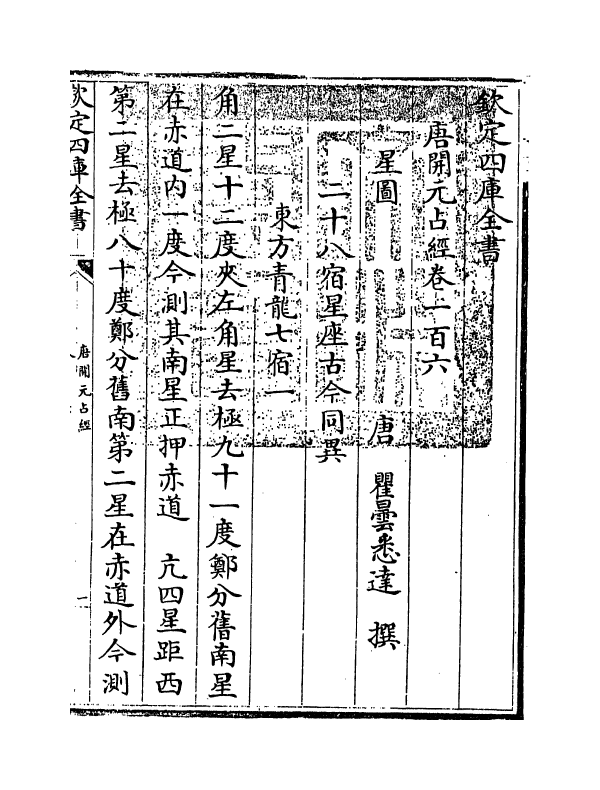 欽定四庫全書
唐開元占經卷一百六
唐　瞿曇悉達　撰
星圖
二十八宿星座古今同異
東方青龍七宿一
角二星十二度夾左角星去極九十一度鄭分舊南星
在赤道内一度今測其南星正押赤道　亢四星距西
第二星去極八十度鄭分舊南第二星在赤道外今測
欽定四庫全書
唐開元占經
一